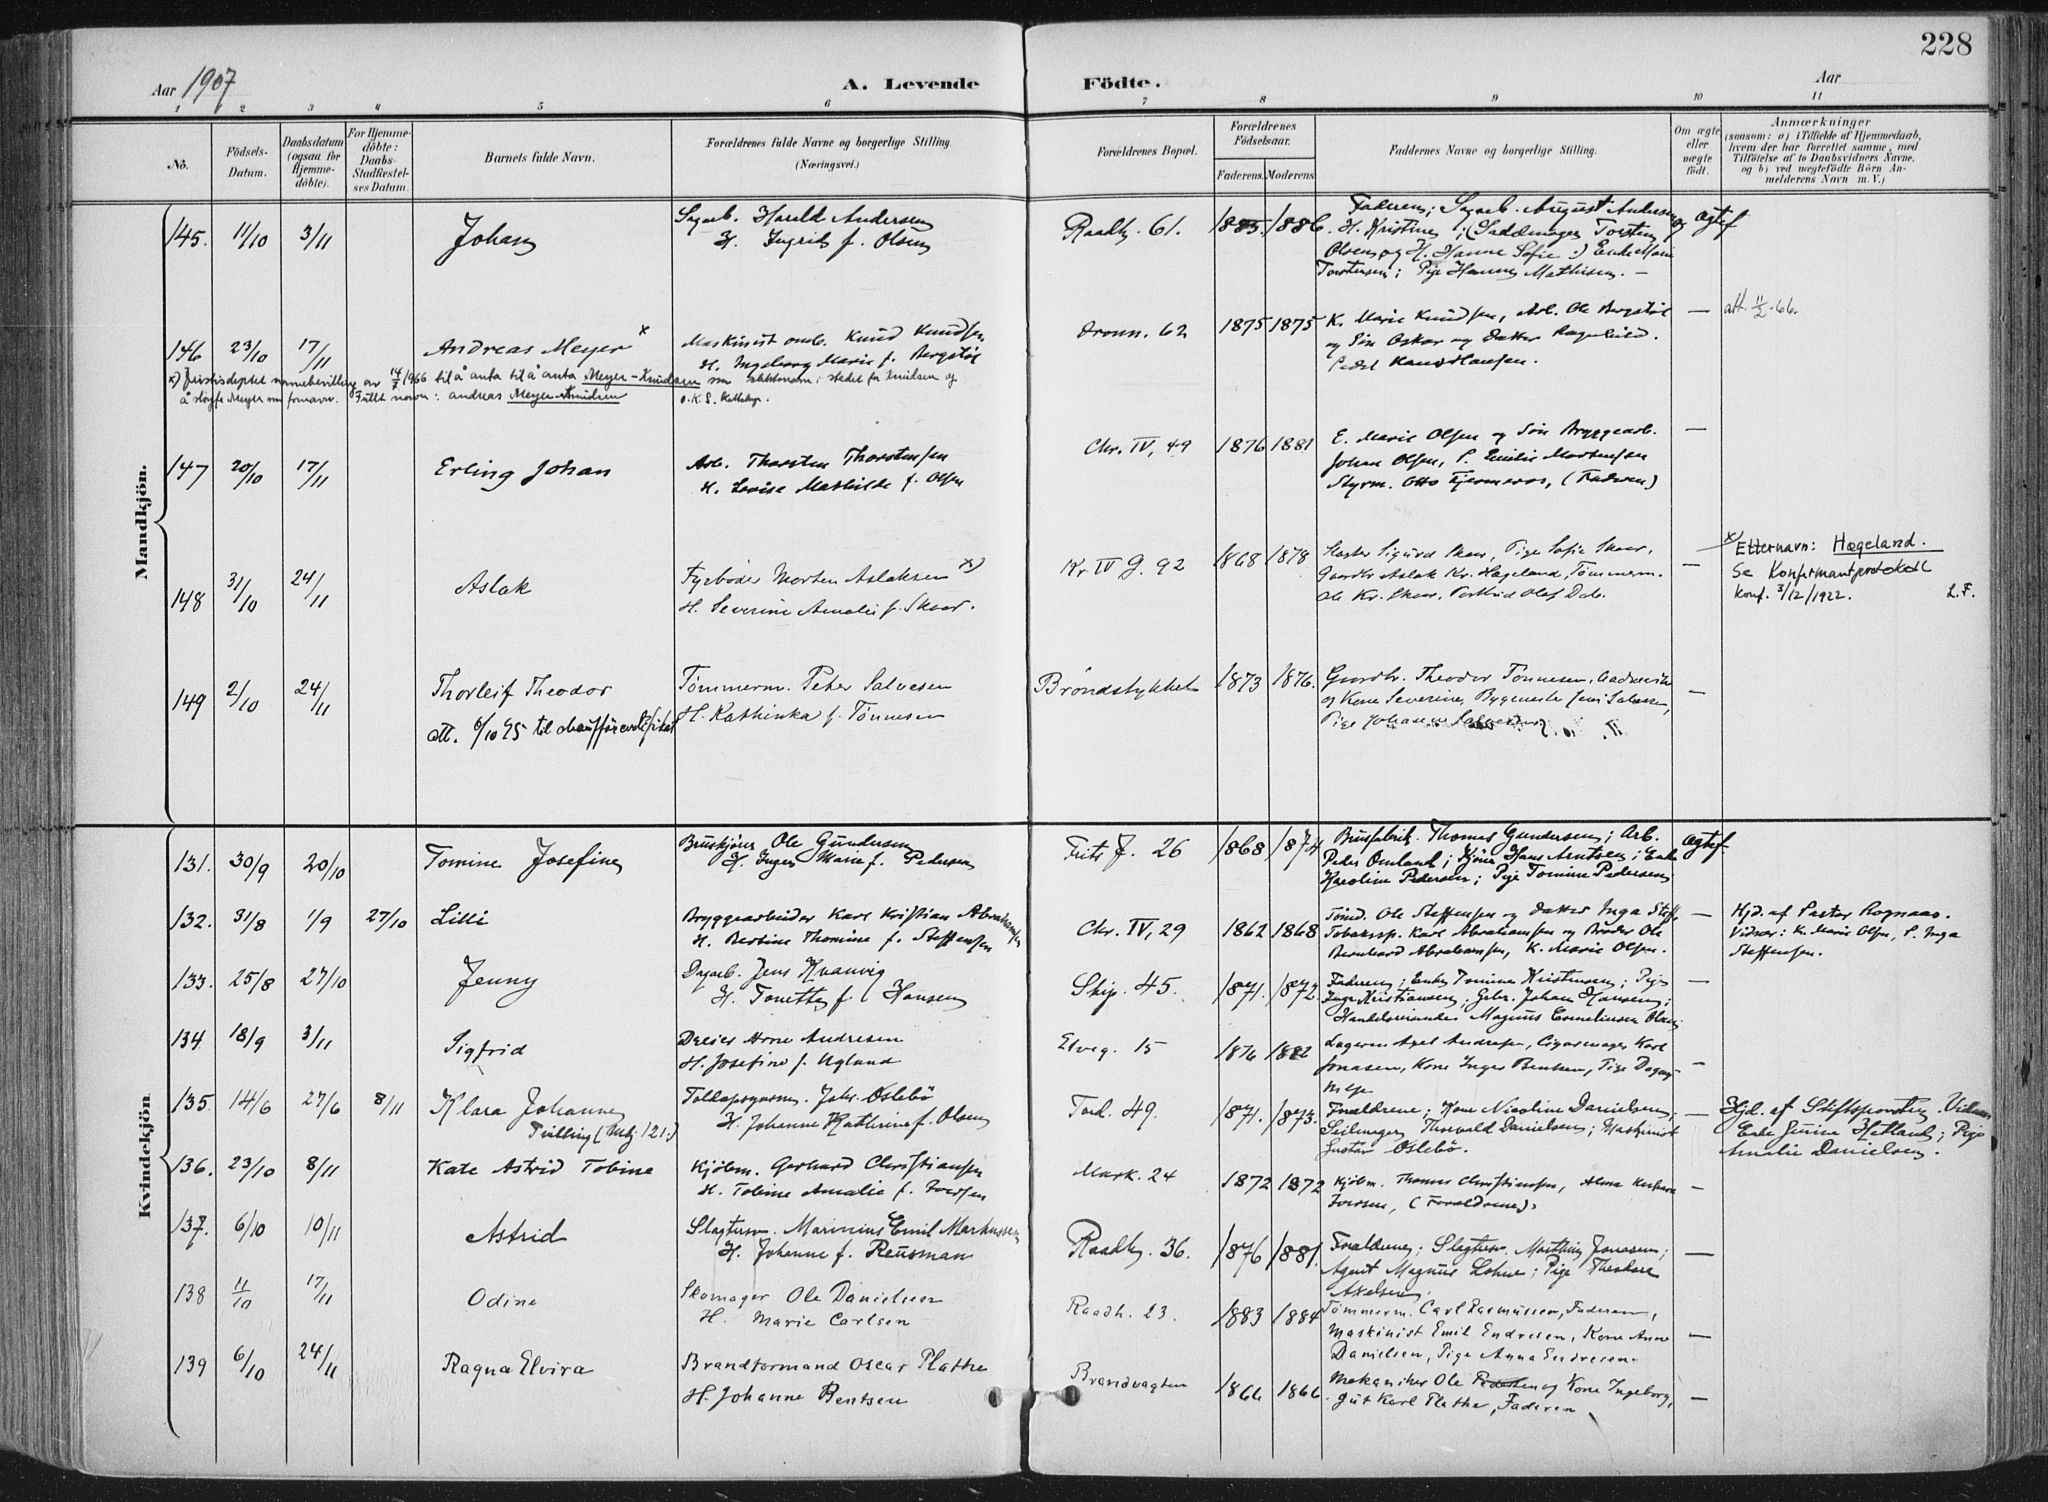 228
Aar 1907
A. Levende Födte.
Aar
1 2 3 4 5 6 7 8 9 10 11
No.
Födsels-
Datum.
Daabsdatum
(ogsaa for
Hjemme-
döbte).
For Hjemme-
döbte:
Daabs-
Stadfæstel-
ses Datum.
Barnets fulde Navn.
Forældrenes fulde Navne og borgerlige Stilling.
(Næringsvei.)
Forældrenes Bopæl.
Forældrenes
Födselsaar.
Faderens. Moderens
Faddernes Navne og borgerlige Stilling.
Om ægte
eller
uægte
födt.
Anmærkninger
(saasom: a) i Tilfælde af Hjemmedaab,
hvem der har forrettet samme, med
Tilföielse af to Daabsvidners Navne,
og b) ved uægtefödte Börn An-
melderens Navn m. V.)
Mandkjön.
145. 11/10 3/11 Johan
Harald Andersen
H. Ingrid f. Olsen
Raadhg. 61. 1885. 1886.
Faderen; August Andersen og
H. Kristine; (Sadelmager Torsten
Olsen og H. Hanne Sofie.) Enke Marie
Torstensen; Pige Hanna Mathisen. —
Ægtef
146 23/10 17/11 Andreas Meyer x
Maskinist omb. Knud Knudsen
H. Ingeborg Marie f. Bergstøl
Dronn. 62 1875 1875
K. Marie Knudsen, Arb. Ole Bergstøl
og Søn Oskar og Datter Ragnhild.
Hansen.
— att. 11/2-66.
x) Justisdeptet navnebevilling av 14/7 1966 til å anta til å anta Meyer-Knudsen som slektsnavn i stedet for Knudsen og
å sløyfe Meyer som fornavn. Fullt navn: Andreas Meyer-Knudsen
147 20/10 17/11 Erling Johan
Arb. Thorsten Thorstensen
H. Lovise Mathilde f. Olsen
Chr. IV, 49 1876 1881
E. Marie Olsen og Søn Bryggearb.
Johan Olsen, P. Emilie Mortensen
Styrm. Otto Fjermeros, (Faderen)
—
148 31/10 24/11 Aslak
Fyrbøder Morten Aslaksen x)
H. Severine Amalie f. Skaar.
Kr. IV G. 92 1868 1878
Sigurd Skaar, Pige Sofie Skaar,
Gaardbr Aslak Kr. Hageland, Tømmerm.
Ole Kr. Skaar, Olaf Dal.
—
x Etternavn: Hægeland.
Se Konfirmantprotokoll
konf. 3/12/1922. L.F.
149 2/10 24/11 Thorleif Theodor
att. 6/10 45 til chaufførcertifikat
Tømmerm. Peter Salvesen
H. Kathinka f. Tønnesen
Brøndstykket 1873 1876.
Gaardbr. Theodor Tønnesen,
og Kone Severine, Bygmester Jens Salvesen,
Pige Johanne Salvesen
—
Kvindekjön.
131. 30/9 20/10 Tomine Josefine
Bruskjører Ole Gundersen
H. Inger Marie f. Pedersen
Frits J. 26 1868 1874
Brusfabrik. Thomas Gundersen; Arb.
Peder Omland; Kjører Hans Arntsen; Enke
Karoline Pedersen; Pige Tomine Pedersen
Ægtef.
132. 31/8 1/9 27/10 Lilli
Bryggearbeider Karl Kristian Abrahamsen
H. Bertine Thomine f. Steffensen
Chr. IV, 29 1862 1868
Tømd. Ole Steffensen og Datter Inga Steff.
Tobakssp. Karl Abrahamsen og Broder Ole
Bernhard Abrahamsen, K. Marie Olsen.
—
Hjd. af Pastor Rognaas.
Vidner: K. Marie Olsen, P. Inga
Steffensen.
133. 25/8 27/10 Jenny
Dagarb. Jens Kvanvig
H. Tonette f. Hansen
Skip. 45. 1871. 1872.
Faderen; Enke Tomine Kristensen; Pige
Inga Kristiansen; Johan Hansen;
Handelsreisende Magnus Corneliussen Olsen
—
134 18/9 3/11 Sigfrid
Dreier Arne Andresen
H. Josefine f. Ugland
Elveg. 15 1876 1882
Axel Andresen, Cigarmager Karl
Jonasen, Kone Inger Bentsen, Pige Dagny
—
135. 14/6 27/6 8/11 Klara Johanne
Tvilling (Mkj. 121.)
Toldopsynsm. Johs. Oslebö
H. Johanne Kathrine f. Olsen
Tord. 49. 1871. 1873.
Forældrene; Kone Nicoline Danielsen;
Seilmager Thorvald Danielsen; Maskinist
Gustav Oslebö.
—
Hjd. af Stiftsprovsten. Vidner
Enke Jensine Hetland; Pige
Amalie Danielsen.
136. 23/10 8/11 Kate Astrid Tobine
Kjøbm. Gerhard Christiansen
H. Tobine Amalie f. Iversen
Mark. 24 1872 1872
Kjøbm. Thomas Christiansen, Alma
Iversen, (Forældrene).
—
137. 6/10 10/11 Astrid
Slagtersv. Marinius Emil Markussen
H. Johanne f. Reusman
Raadhg. 36. 1876 1881.
Forældrene; Slagtersv. Jonasen;
Agent Magnus Lohne; Pige Theodora
Axelsen.
—
138 11/10 17/11 Odine
Skomager Ole Danielsen
H. Marie Carlsen
Raadh. 23. 1883 1884
Tømmerm. Carl Rasmussen, Faderen,
Maskinist Emil Endresen, Kone Anne
Danielsen, Pige Anna Endresen.
—
139 6/10 24/11 Ragna Elvira
Brandformand Oscar Plathe
H. Johanne Bentsen
Brandvagten 1866 1866
Mekaniker Ole Pedersen og Kone Ingeborg,
Gut Karl Plathe, Faderen
—